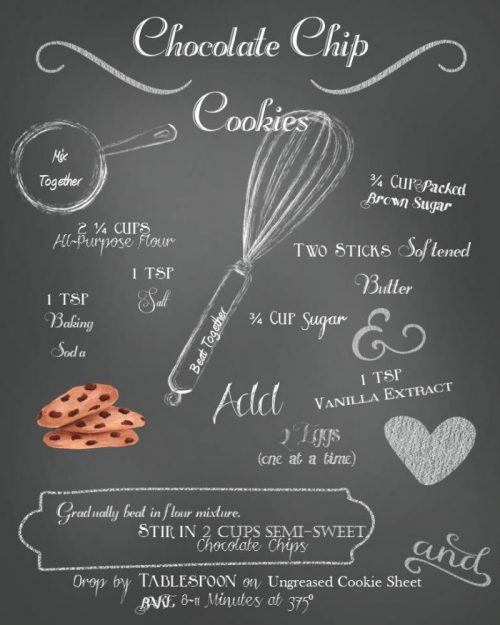 Chocolate Chip
Cookies
Mix
Together
2 ¼ cups
All-Purpose Flour
1 tsp
Salt
1 tsp
Baking
Soda
¾ Cup Packed
Brown Sugar
Two Sticks Softened
Butter
¾ Cup Sugar
&
1 tsp
Vanilla Extract
Beat Together
Add
2 Eggs
(one at a time)
Gradually beat in flour mixture.
Stir in 2 cups semi-sweet
Chocolate Chips
and
Drop by Tablespoon on Ungreased Cookie Sheet
Bake 8-11 Minutes at 375°